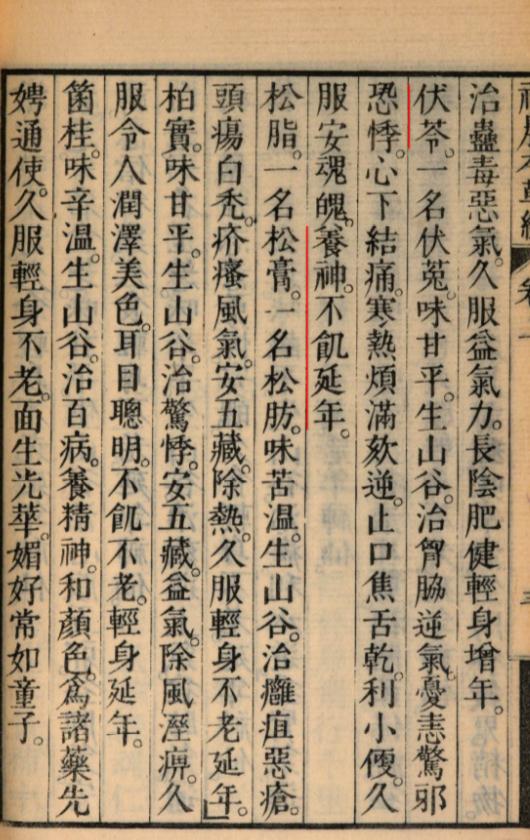 治蠱毒惡氣。久服益氣力。長陰肥健輕身增年。
伏苓。一名伏菟。味甘平。生山谷。治胷脇逆氣。憂恚驚邪
恐悸。心下結痛。寒熱煩滿欬逆。止口焦舌乾。利小便。久
服安魂魄。養神。不飢延年。
松脂。一名松膏。一名松肪。味苦溫。生山谷。治癰疽惡瘡。
頭瘍白禿。疥瘙風氣。安五藏。除熱。久服輕身不老延年。
柏實。味甘平。生山谷。治驚悸。安五藏。益氣。除風溼痹。久
服令人潤澤美色。耳目聰明。不飢不老。輕身延年。
箘桂。味辛溫。生山谷。治百病。養精神。和顏色。爲諸藥先
娉通使。久服輕身不老。面生光華。媚好常如童子。